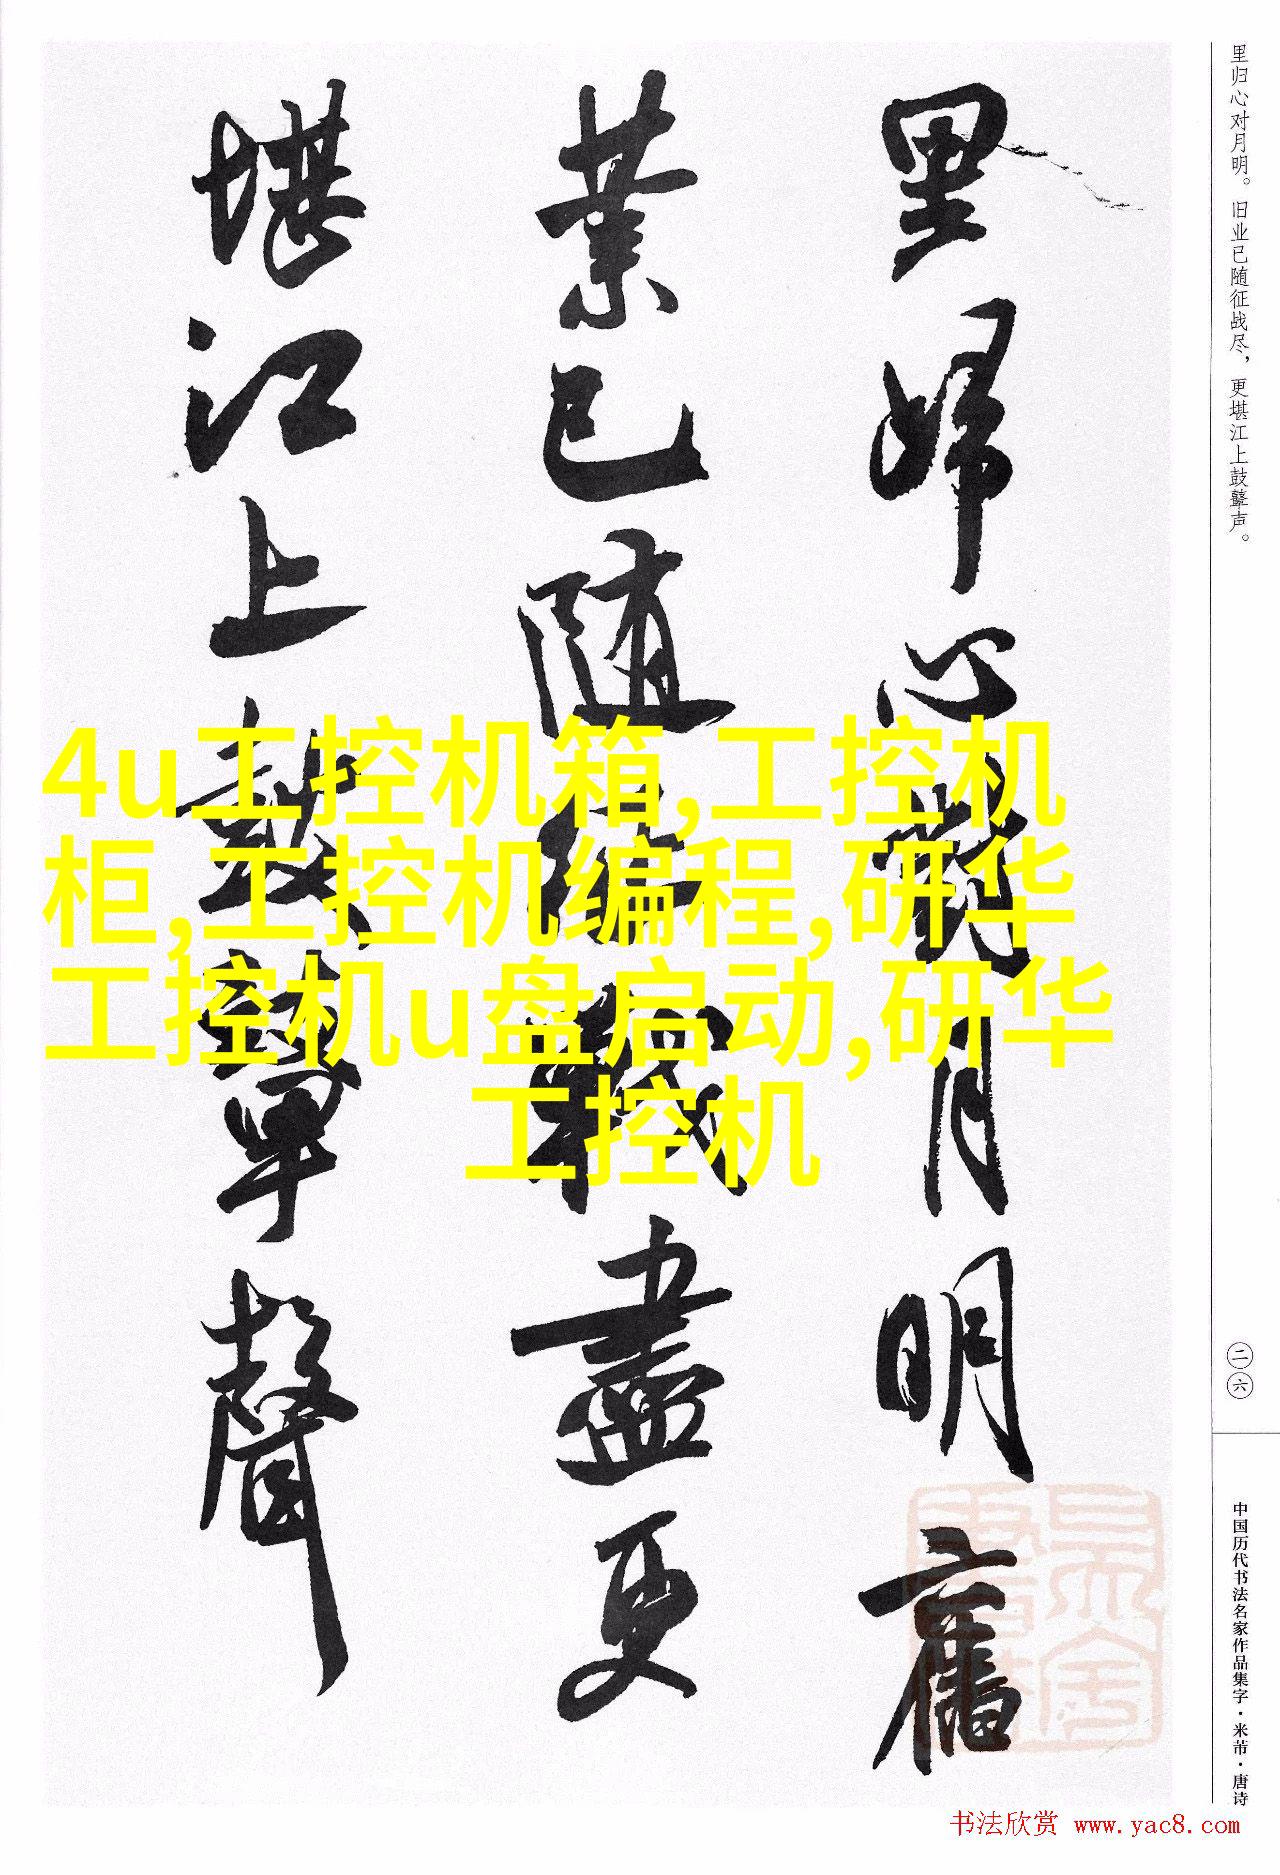 里归心对月明。旧业已随征战尽，更堪江上鼓鼙声。
里歸心對月明舊
業已隨征戰盡更
堪江上鼓鼙聲
4u工控机箱,工控机
柜,工控机编程,研华
工控机u盘启动,研华
工控机
二六
中国历代书法名家作品集字·米芾·唐诗
书法欣赏 www.yac8.com